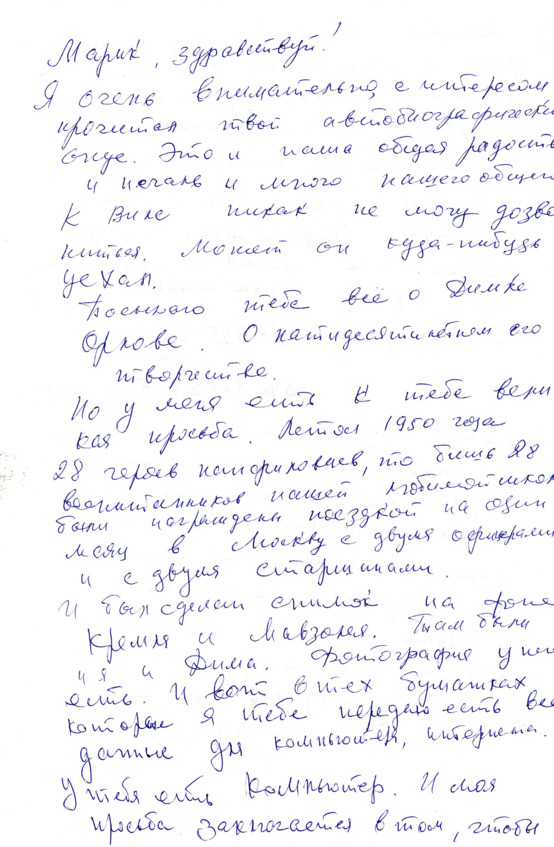 Марик, здравствуй!
Я очень внимательно, с интересом
прочитал твой автобиографически
Это и наша общая радость
и печаль и много нашего общего
К Виле никак не могу дозво
ниться. Может он куда-нибудь
уехал.
Посылаю тебе всё о Димке
Орлове. О пятидесятилетнем его
творчестве.
Но у меня есть к тебе вели
кая просьба. Летом 1950 года
28 героев панфиловцев, то бишь 28
воспитанников нашей любимой школ
были награждены поездкой на один
месяц в Москву с двумя офицерами
и с двумя старшинами.
И был сделан снимок на фоне
Кремля и Мавзолея. Там были
и я и Дима. Фотография у ме
есть. И вот в тех бумажках
которые я тебе передаю есть все
данные для компьютера, интернета.
У тебя есть компьютер. И моя
просьба заключается в том, чтобы